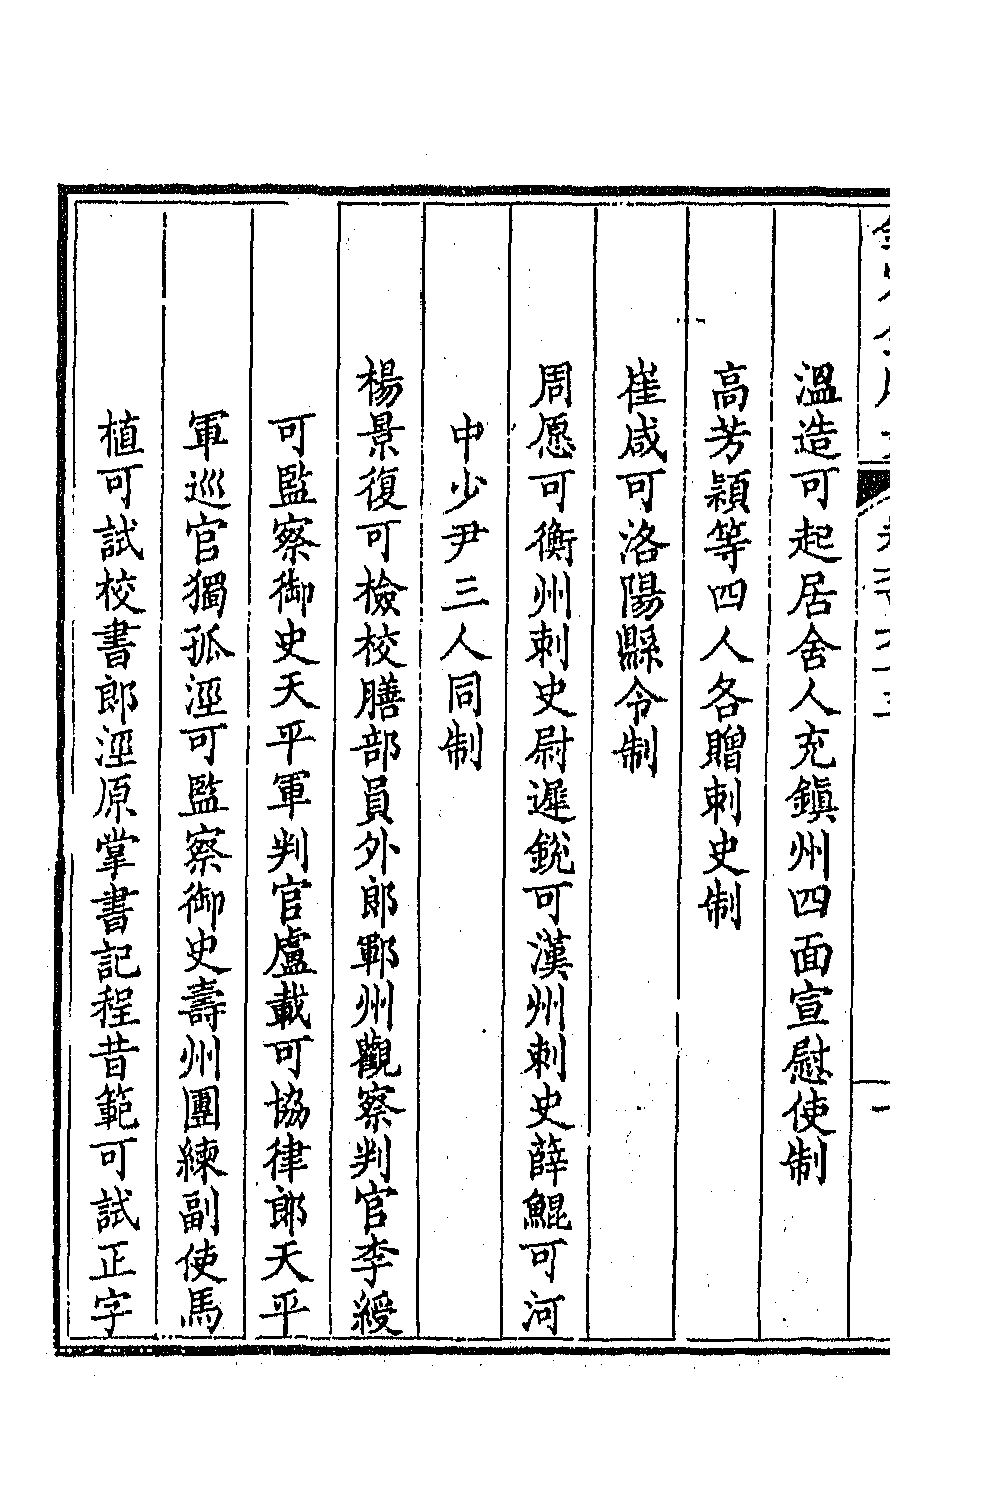 溫造可起居舍人充鎭州四面宣慰使制
高芳頴等四人各贈刺史制
崔咸可洛陽縣令制
周愿可衡州刺史尉遲銳可漢州刺史薛鯤可河
中少尹三人同制
楊景復可檢校膳部員外郎鄆州觀察判官李綬
可監察御史天平軍判官盧載可協律郎天平
軍巡官獨孤涇可監察御史壽州團練副使馬
植可試校書郎涇原掌書記程昔範可試正字